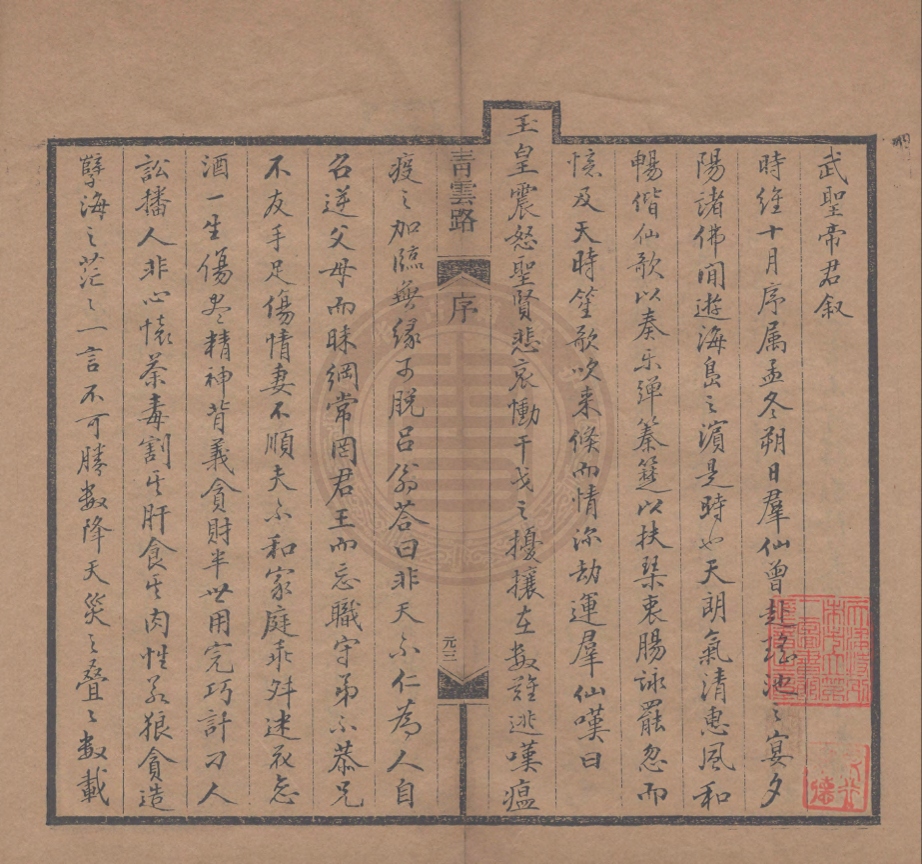 武聖帝君叙
時維十月序属孟冬朔日羣仙曽赴瑤池之宴夕
陽諸佛閒遊海島之濵是時也天朗氣清惠風和
暢偕仙歌以奏乐弹蓁筳以扶琹衷腸詠罷忽而
憶及天時笙歌吹来倏而情沵劫運羣仙嘆曰
玉皇震怒聖賢悲哀慟干戈之擾攘在数難逃嘆瘟
青雲路
序
元三
疫之加臨無缘可脱吕翁荅曰非天不仁為人自
名逆父母而昧綱常罔君王而忘職守弟不恭兄
不友手足傷情妻不順夫不和家庭乖舛迷花恋
酒一生傷尽精神背義貪財半世用完巧計刁人
訟播人非心懐荼毒割其肝食其肉性若狼貪造
孽海之茫之一言不可勝数降天災之叠之数載